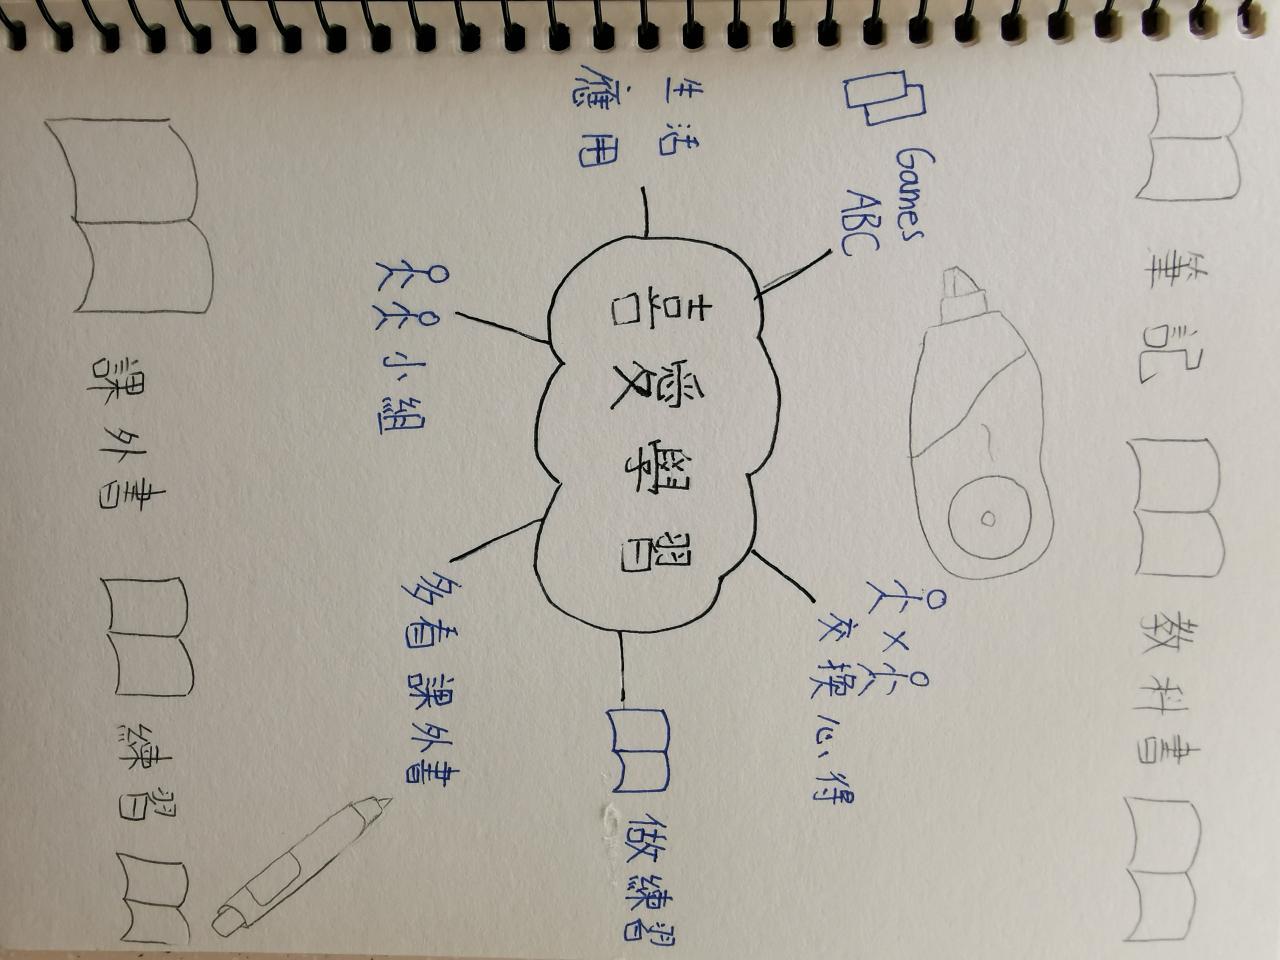 筆記 教科書
Games
ABC
交換心得
生活
應用
喜愛學習
做練習
小組
多看課外書
課外書 練習